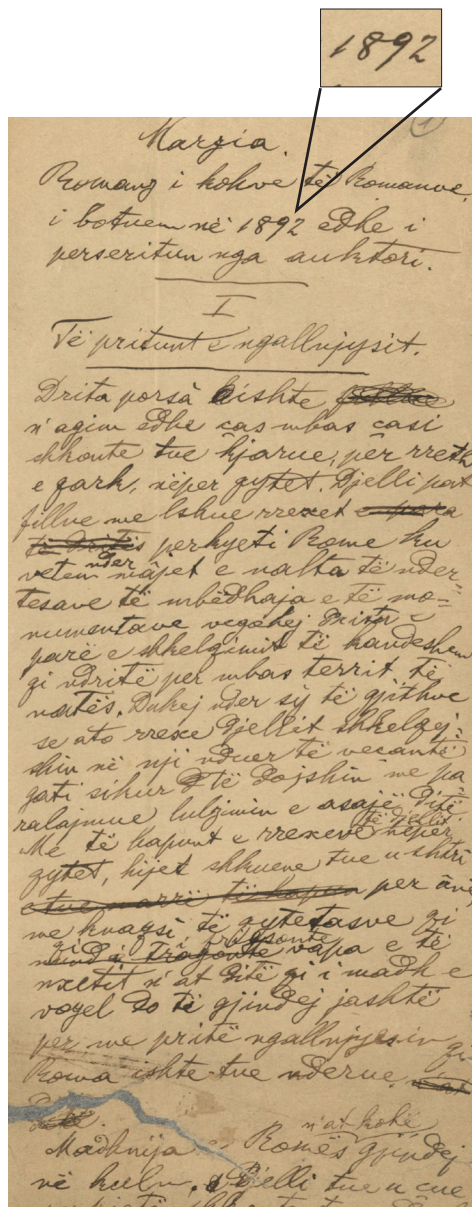 1892
(1)
Marzia.
Romanz i kohve të Romanve,
i botuem në 1892 edhe i
perseritun nga auktori.
I
Të pritunt e ngallnjysit.
Drita porsà kishte
n'agim edhe cas mbas casi
shkonte tue kjarue, për rreth
e qark, nëper qytet. Djelli port
fillue me lshue rrezet e para
të Dritës perkyeti Rome ku
vetem nder màjet e nalta të nder-
tesave të mbëdhaja e të mo-
numentave vegohej Drita e
parë e shkelqimit të kandeshem
qi ndritë per mbas territ të
natës. Dukej nder sy të gjithve
se ato rreze Djellit shkelqej-
shin në nji nduer të vecantë
gati sikur të dojshin me pa
ralajmue lulzimin e asajë Ditë
Me të hapunt e rrezeve të Djellit nëper
qytet, hijet shkueve tue u shtri
e tue marrë të hapun per âne,
me kvaqsi të qytetasve qi
vapa e të
nxetit n'at Ditë qi i madh e
vogel Do të gjindej jashtë
per me pritë ngallnjyesin qi
Roma ishte tue nderue,
n'at kohë
Madhnija e Romës gjindej
në kulm. Djelli tue u cue